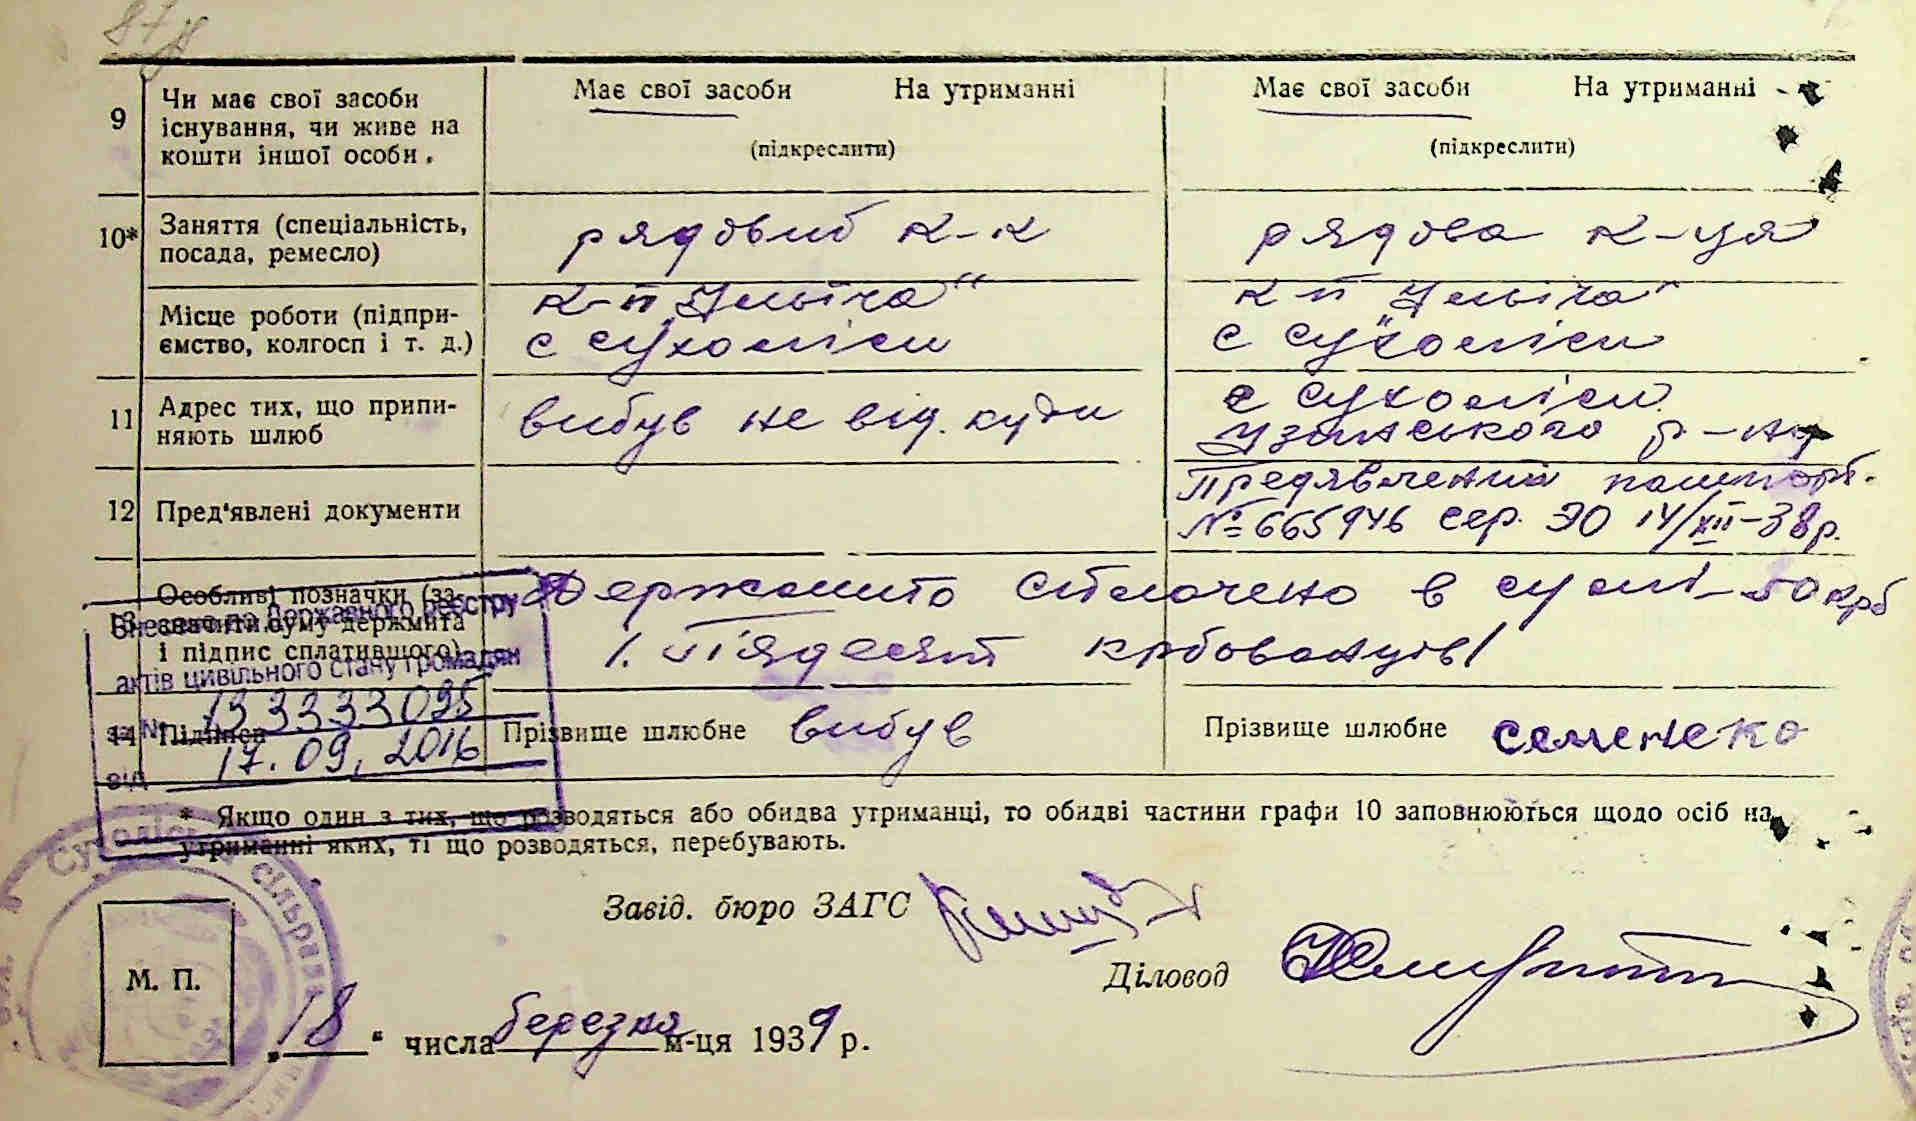 87
9 Чи має свої засоби існування, чи живе на кошти іншої особи. Має свої засоби На утриманні (підкреслити) Має свої засоби На утриманні (підкреслити)
10* Заняття (спеціальність, посада, ремесло) рядовий к-к рядова к-ця
Місце роботи (підпри-
ємство, колгосп і т. д.)
к-п „Ільіча“
с Сухоліси
к п „Ільіча“
с Сухоліси
11 Адрес тих, що припи-
няють шлюб
вибув не від. куди
с Сухоліси
Узинського р-ну
12 Пред'явлені документи
Предявлений пашпорт.
№ 665946 сер. ЭО 14/XII-38р.
13 Особливі позначки (за-
значити суму держмита
і підпис сплатившого)
Держмито сплочено в сумі-50 крб
/. П'ядесят крбованців/
Внесено до Державного реєстру
актів цивільного стану громадян
за № 133333095
від 17.09.2016
14 Підписи Прізвище шлюбне вибув Прізвище шлюбне Семенеко
* Якщо один з тих, що розводяться або обидва утриманці, то обидві частини графи 10 заповнюються щодо осіб на
утриманні яких, ті що розводяться, перебувають.
Завід. бюро ЗАГС
Діловод
М. П.
„18“ числа березня м-ця 1939 р.
сільрада